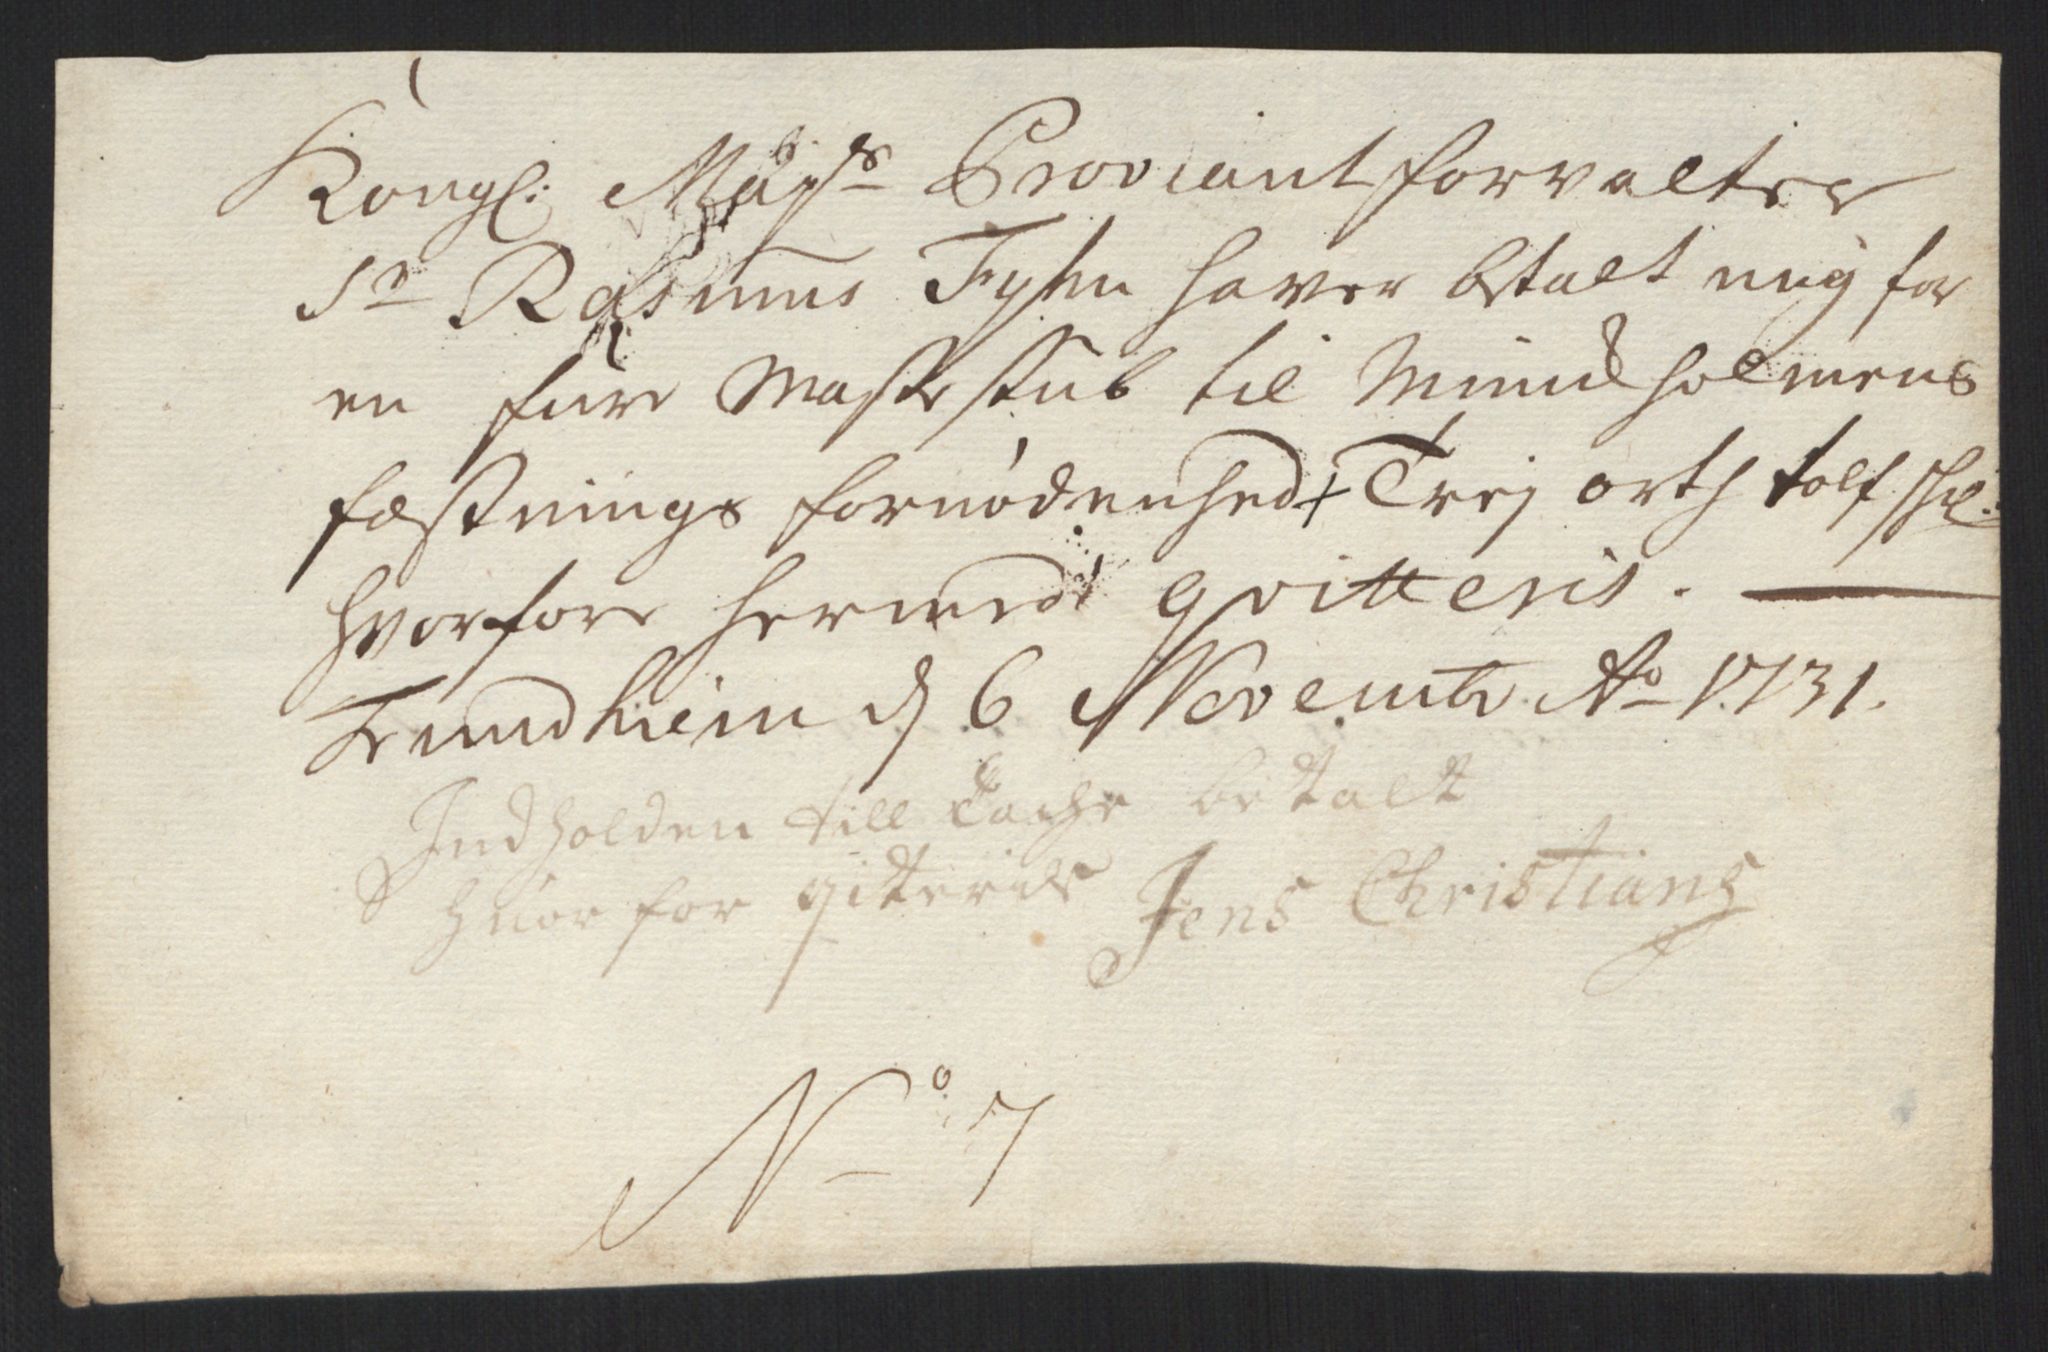 Kongl: Mayts Proviantforvalter
Sr Rasmus Fyhn haver betalt mig for
en fure Maste stub til Munkholmens
fæstnings fornødenhed + Trej orth tolf schl:
hvorfore hermed qvitteris.
Trundhiem d 6 Novembr Ao 1731.
Indholden till tache betalt
huorfor qitteris Jens Christians
No 7